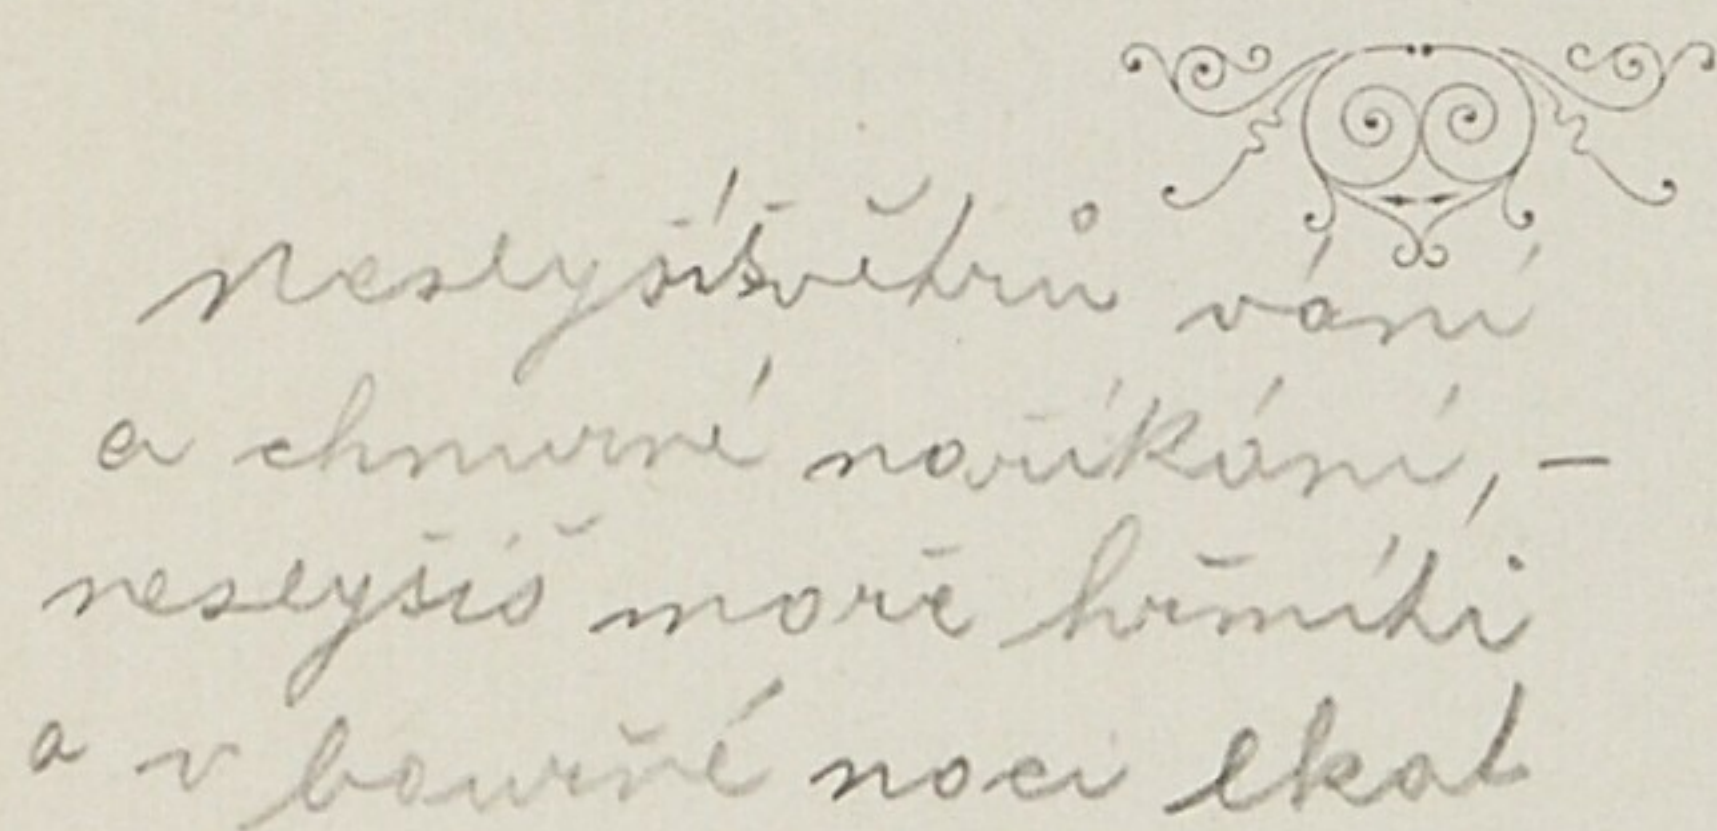 Neslyšíš větrů vání
a chmurné naříkání, –
neslyšíš moře hřmíti
a v bouřné noci lkát